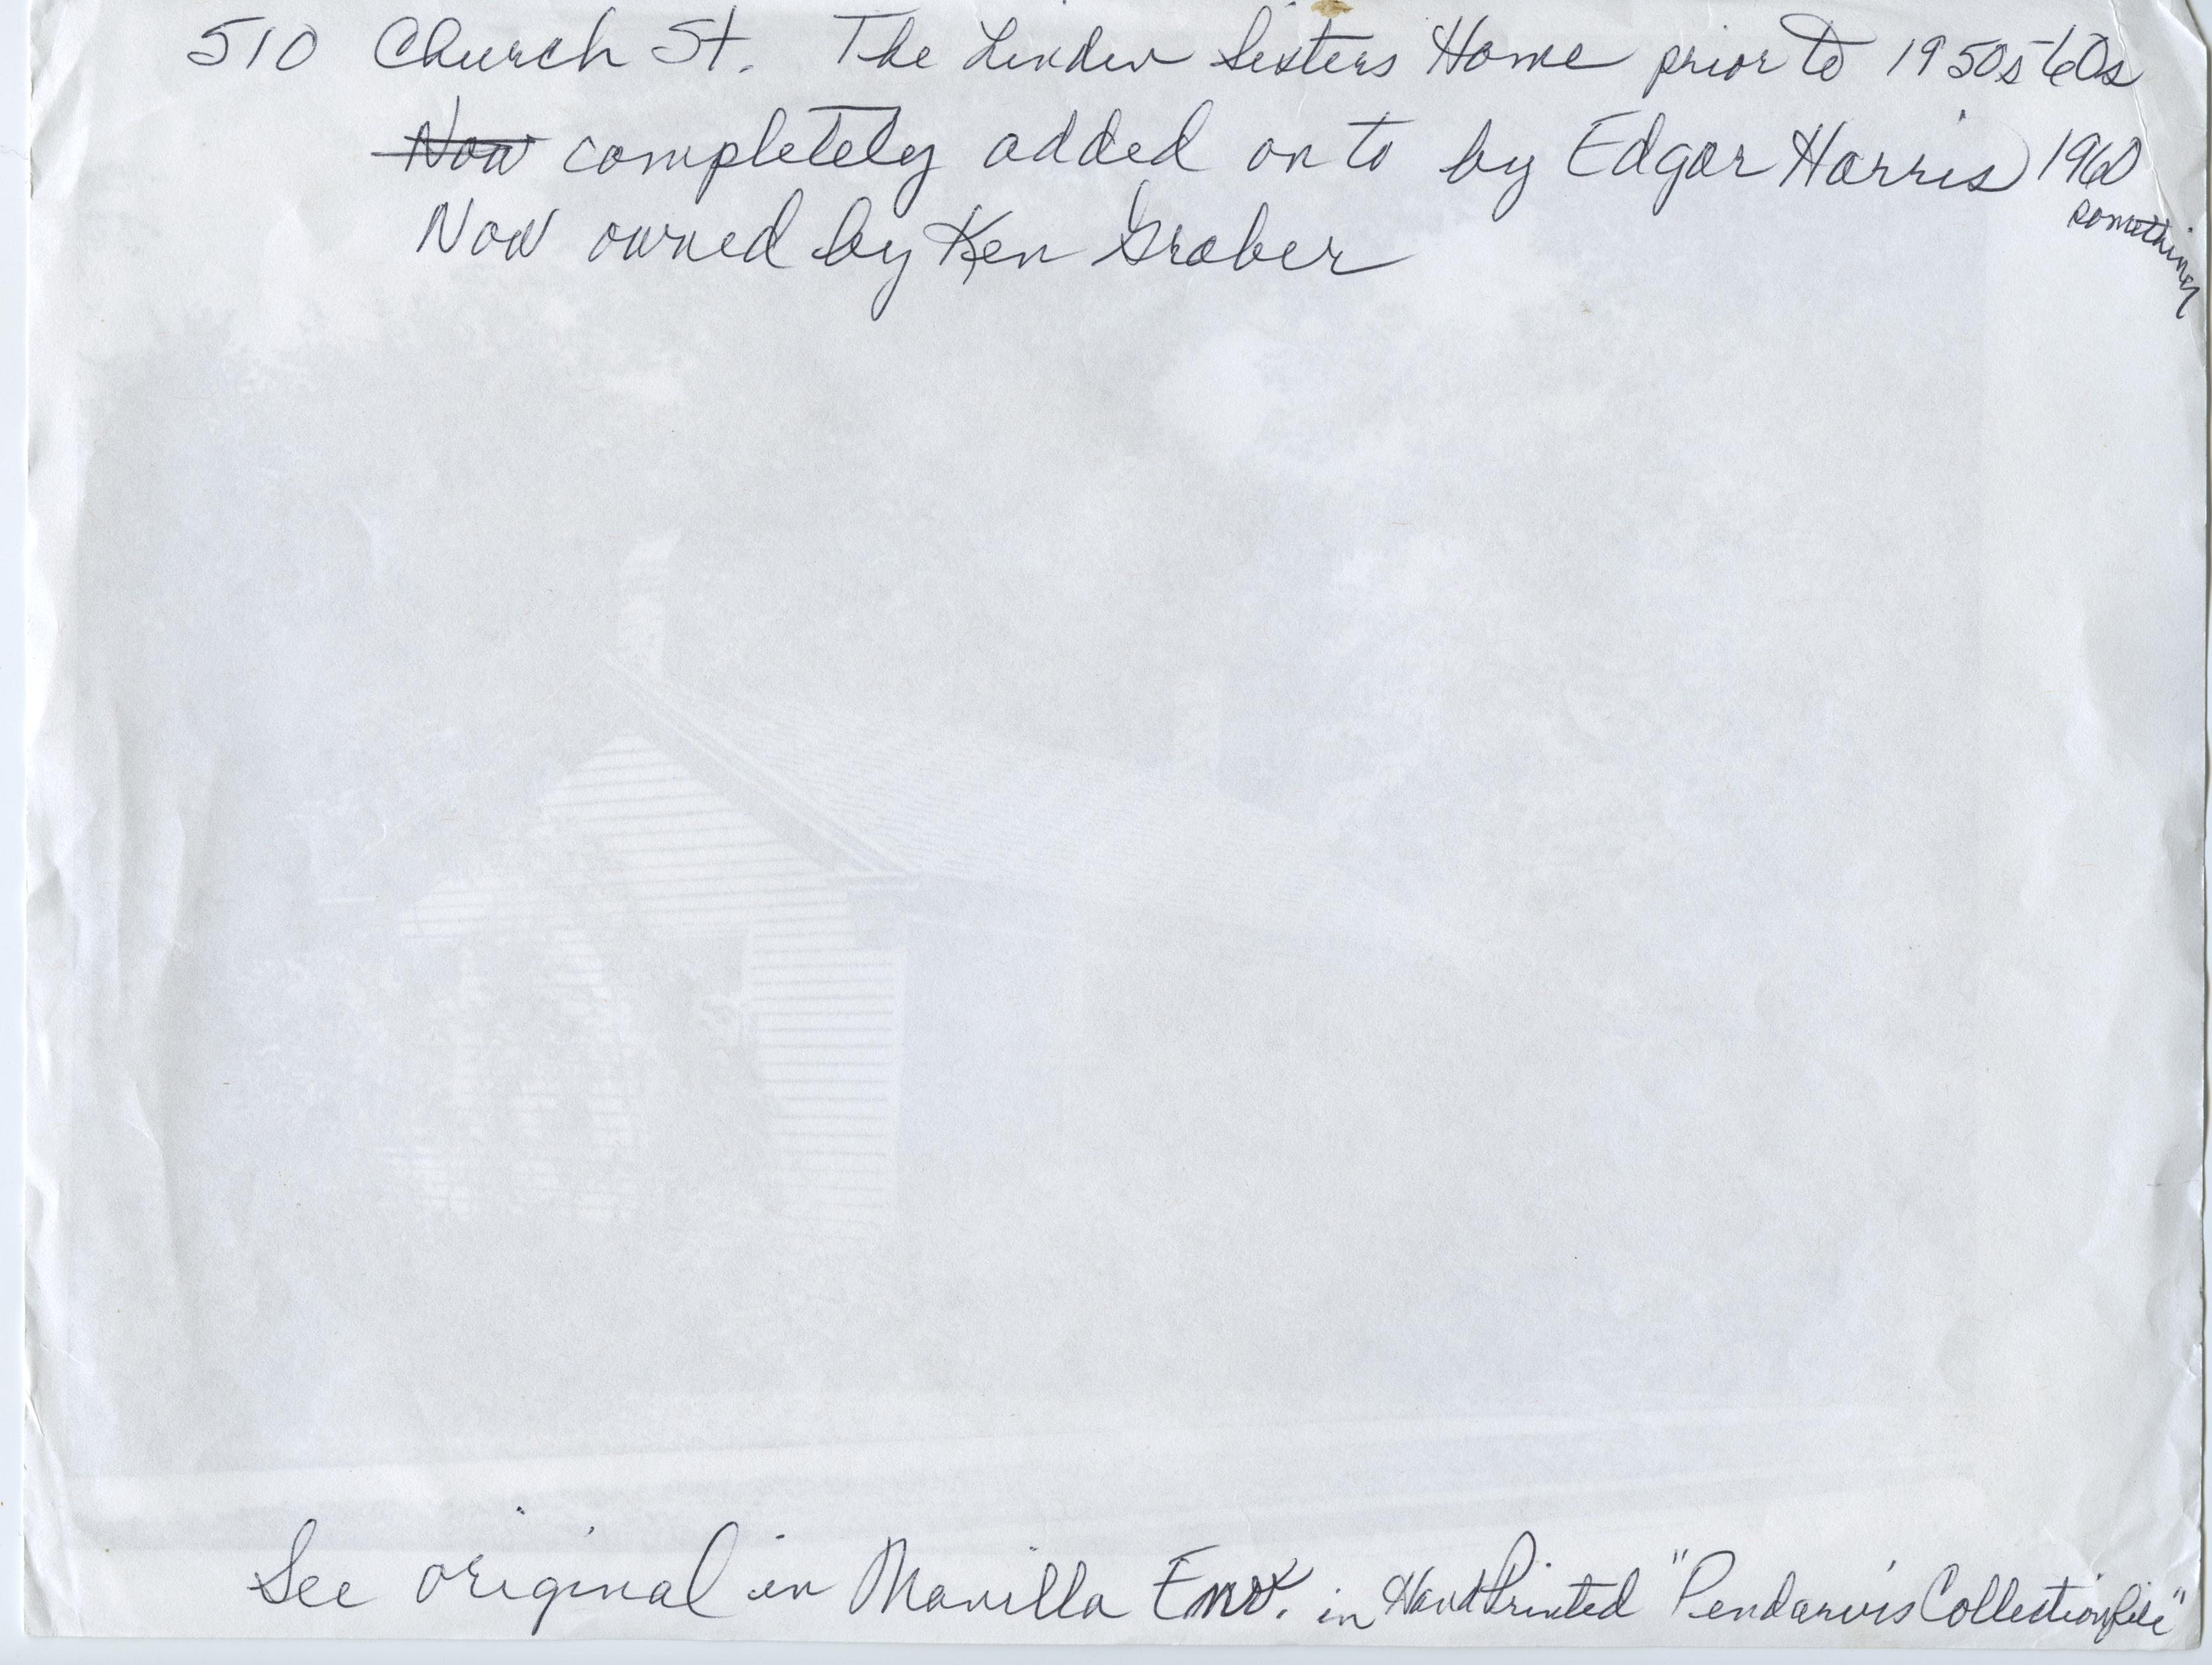 510 Church St. The Linder Sisters Home prior to 1950s 60s
Now completely added on to by Edgar Harris 1960 something
Now owned by Ken Graber
See original in Manilla Env. in Hand Printed "Pendarvis Collection file"